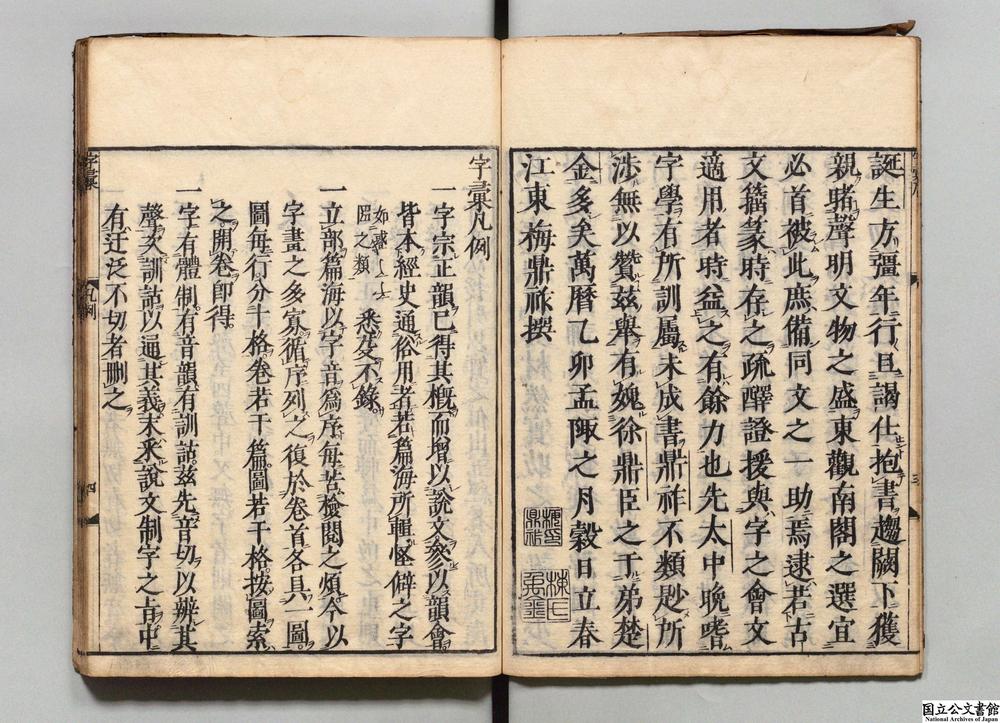 誕生方彊年行且謁仕抱書趨闕下獲
親睹聲明文物之盛東觀南閣之選宜
必首被此庶備同文之一助焉逮若古
文籀篆時存之疏釋證援與字之會文
適用者時益之有餘力也先太中晩嗜
字學有所訓屬未成書鼎祚不類尟所
渉無以贊茲舉有媿徐鼎臣之于弟楚
金多矣萬曆乙卯孟陬之月穀日立春
江東梅鼎祚撰
字彙凡例
一字宗正韻已得其槪而增以說文參以韻會
皆本經史通俗用者若篇海所輯怪僻之字
之類悉芟不錄
一立部篇海以字音爲序每苦檢閱之煩今以
字畫之多寡循序列之復於卷首各具一圖
圖每行分十格卷若干篇圖若干格按圖索
之開卷卽得
一字有體制有音韻有訓詁茲先音切以辨其
聲次訓詁以通其義末采說文制字之旨中
有迂泛不切者刪之
字彙
凡例
四
国立公文書館
National Archives of Japan